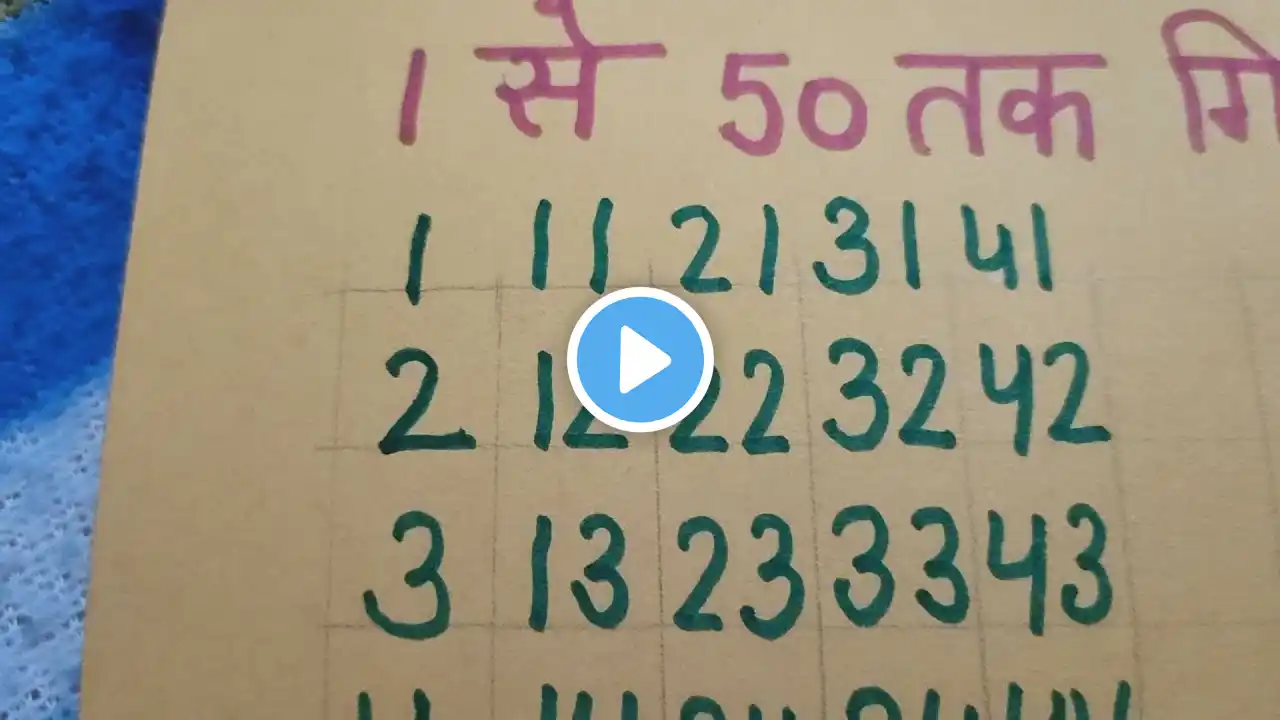 1 से 50 तक
1 11 21 31 41
2 12 22 32 42
3 13 23 33 43